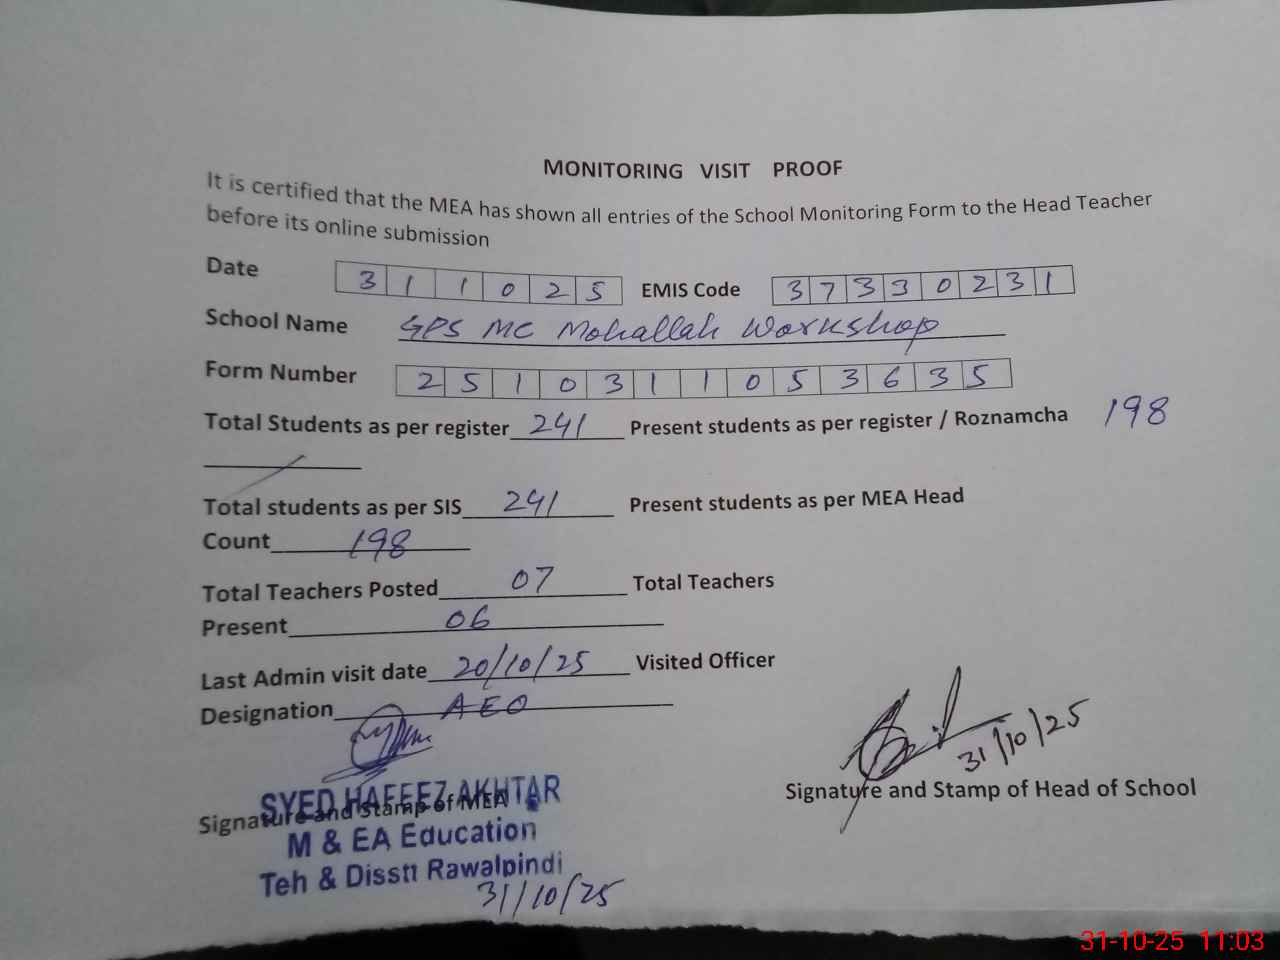 MONITORING VISIT PROOF
It is certified that the MEA has shown all entries of the School Monitoring Form to the Head Teacher
before its online submission
Date 3 1 1 0 2 5 EMIS Code 3 7 3 3 0 2 3 1
School Name GPS MC Mohallah Workshop
Form Number 2 5 1 0 3 1 1 0 5 3 6 3 5
Total Students as per register 241 Present students as per register / Roznamcha 198
Total students as per SIS 241 Present students as per MEA Head
Count 198
Total Teachers Posted 07 Total Teachers
Present 06
Last Admin visit date 20/10/25 Visited Officer
Designation AEO
31/10/25
Signature and Stamp of MEA Signature and Stamp of Head of School
SYED HAFEEZ AKHTAR
M & EA Education
Teh & Disstt Rawalpindi
31/10/25
31-10-25 11:03